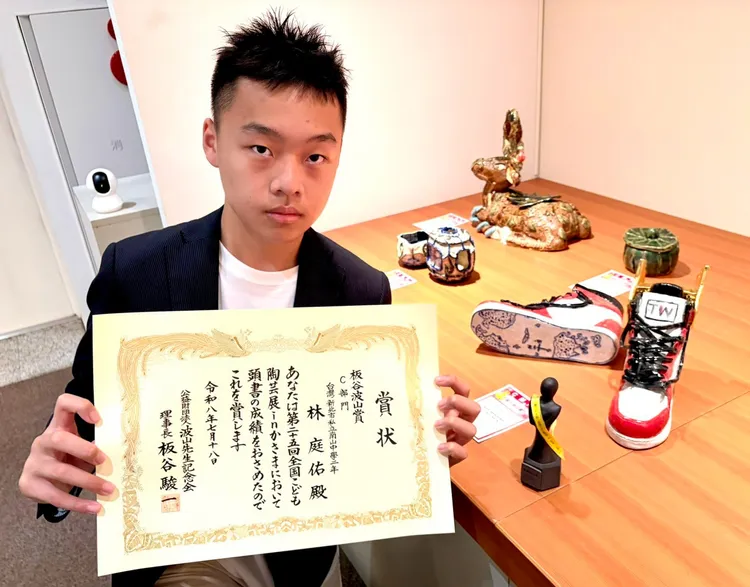 賞状
板谷波山賞
C部門
台灣 新北市私立南山中學二年
林庭佑殿
あなたは第二十五回全国こども
陶芸展inかさまにおいて
頭書の成績をおさめたので
これを賞します
令和八年七月十八日
公益財団法人波山先生記念会
理事長 板谷駿一
TW
消